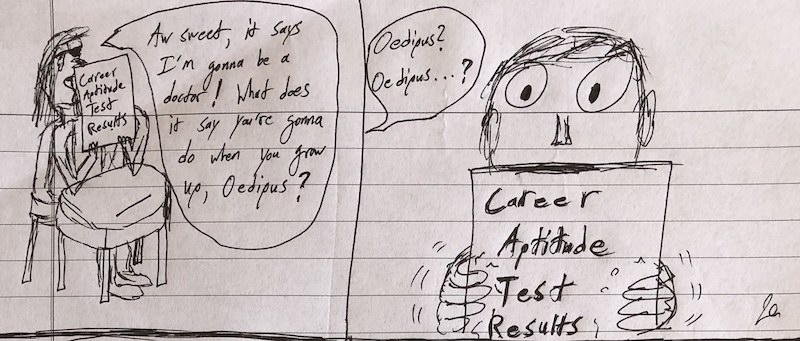 Career
Aptitude
Test
Results
Aw sweet, it says
I'm gonna be a
doctor! What does
it say you're gonna
do when you grow
up, Oedipus?
Oedipus?
Oedipus...?
Career
Aptitude
Test
Results